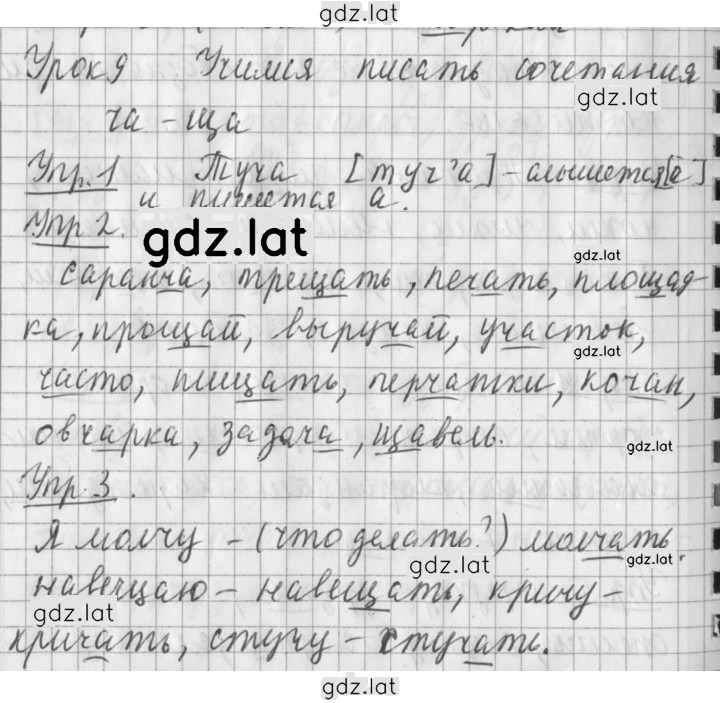 gdz.lat
Урок 9 Учимся писать сочетания
gdz.lat
ча - ща
Упр. 1 Туча [туч'а] - слышется [а]
и пишется а.
Упр 2.
gdz.lat
gdz.lat
саранча, трещать, печать, площад-
ка, прощай, выручай, участок,
gdz.lat
часто, пищать, перчатки, кочан,
овчарка, задача, щавель.
gdz.lat
Упр. 3.
Я молчу - (что делать?) молчать,
gdz.lat
gdz.lat
навещаю - навещать, кричу -
gdz.lat
кричать, стучу - стучать.
gdz.lat